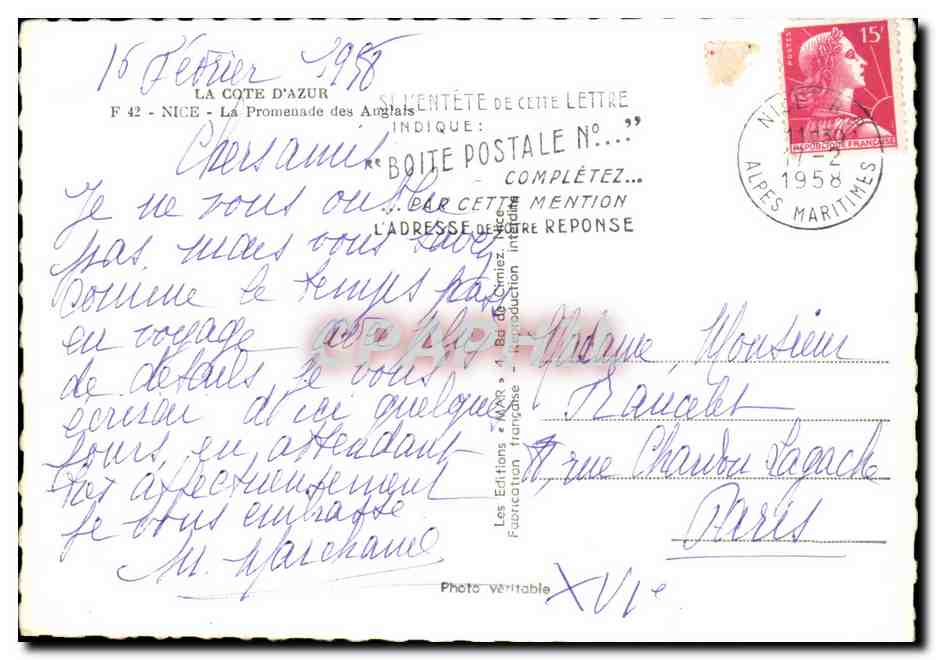 15 Février 1958
LA COTE D'AZUR
F 42 - NICE - La Promenade des Anglais
Chers amis
Je ne vous oublie
pas mais vous savez
comme le temps passe
en voyage
de détails je vous
écrirai d'ici quelques
jours en attendant
affectueusement
je vous embrasse
M. Marchand
SI L'ENTÊTE DE CETTE LETTRE
INDIQUE:
"BOITE POSTALE No...."
COMPLÉTEZ...
...PAR CETTE MENTION
L'ADRESSE DE VOTRE REPONSE
POSTES
15F
REPUBLIQUE FRANÇAISE
NICE
11H30
17-2
1958
ALPES MARITIMES
Les Editions « MAR » 1, Bd de Cimiez, Nice
Fabrication française - Reproduction interdite
Madame, Monsieur
Francelet
rue Chardon Lagache
Paris
XVIe
Photo véritable
CPAPHIL